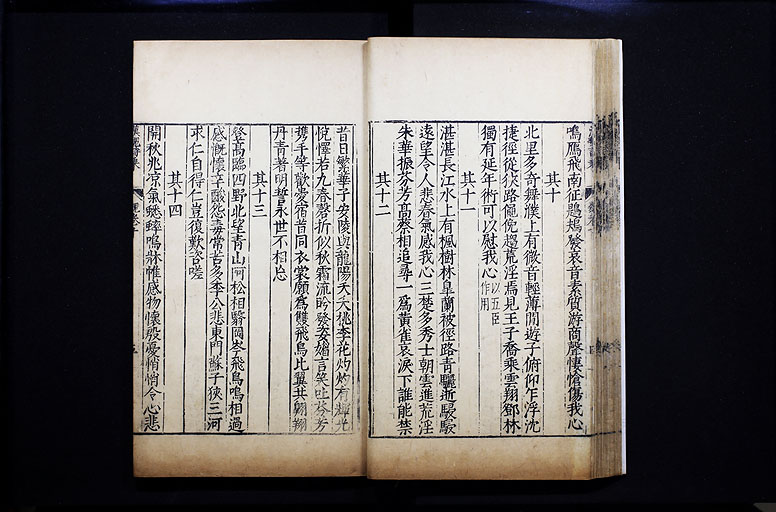 鳴鴈飛南征鶗鴂發哀音素質游商聲悽愴傷我心
其十
北里多奇舞濮上有微音輕薄閒遊子俯仰乍浮沈
捷徑從狹路僶俛趨荒淫焉見王子喬乘雲翔鄧林
獨有延年術可以慰我心以五臣作用
其十一
湛湛長江水上有楓樹林皐蘭被徑路青驪逝駸駸
遠望令人悲春氣感我心三楚多秀士朝雲進荒淫
朱華振芬芳高蔡相追尋一爲黃雀哀淚下誰能禁
其十二
昔日繁華子安陵與龍陽夭夭桃李花灼灼有輝光
悅懌若九春磬折似秋霜流盻發姿媚言笑吐芬芳
携手等歡愛宿昔同衣裳願爲雙飛鳥比翼共翺翔
丹青著明誓永世不相忘
其十三
登高臨四野北望青山阿松柏翳岡岑飛鳥鳴相過
感慨懷辛酸怨毒常苦多李公悲東門蘇子狹三河
求仁自得仁豈復歎咨嗟
其十四
開秋兆涼氣蟋蟀鳴牀帷感物懷殷憂悄悄令心悲